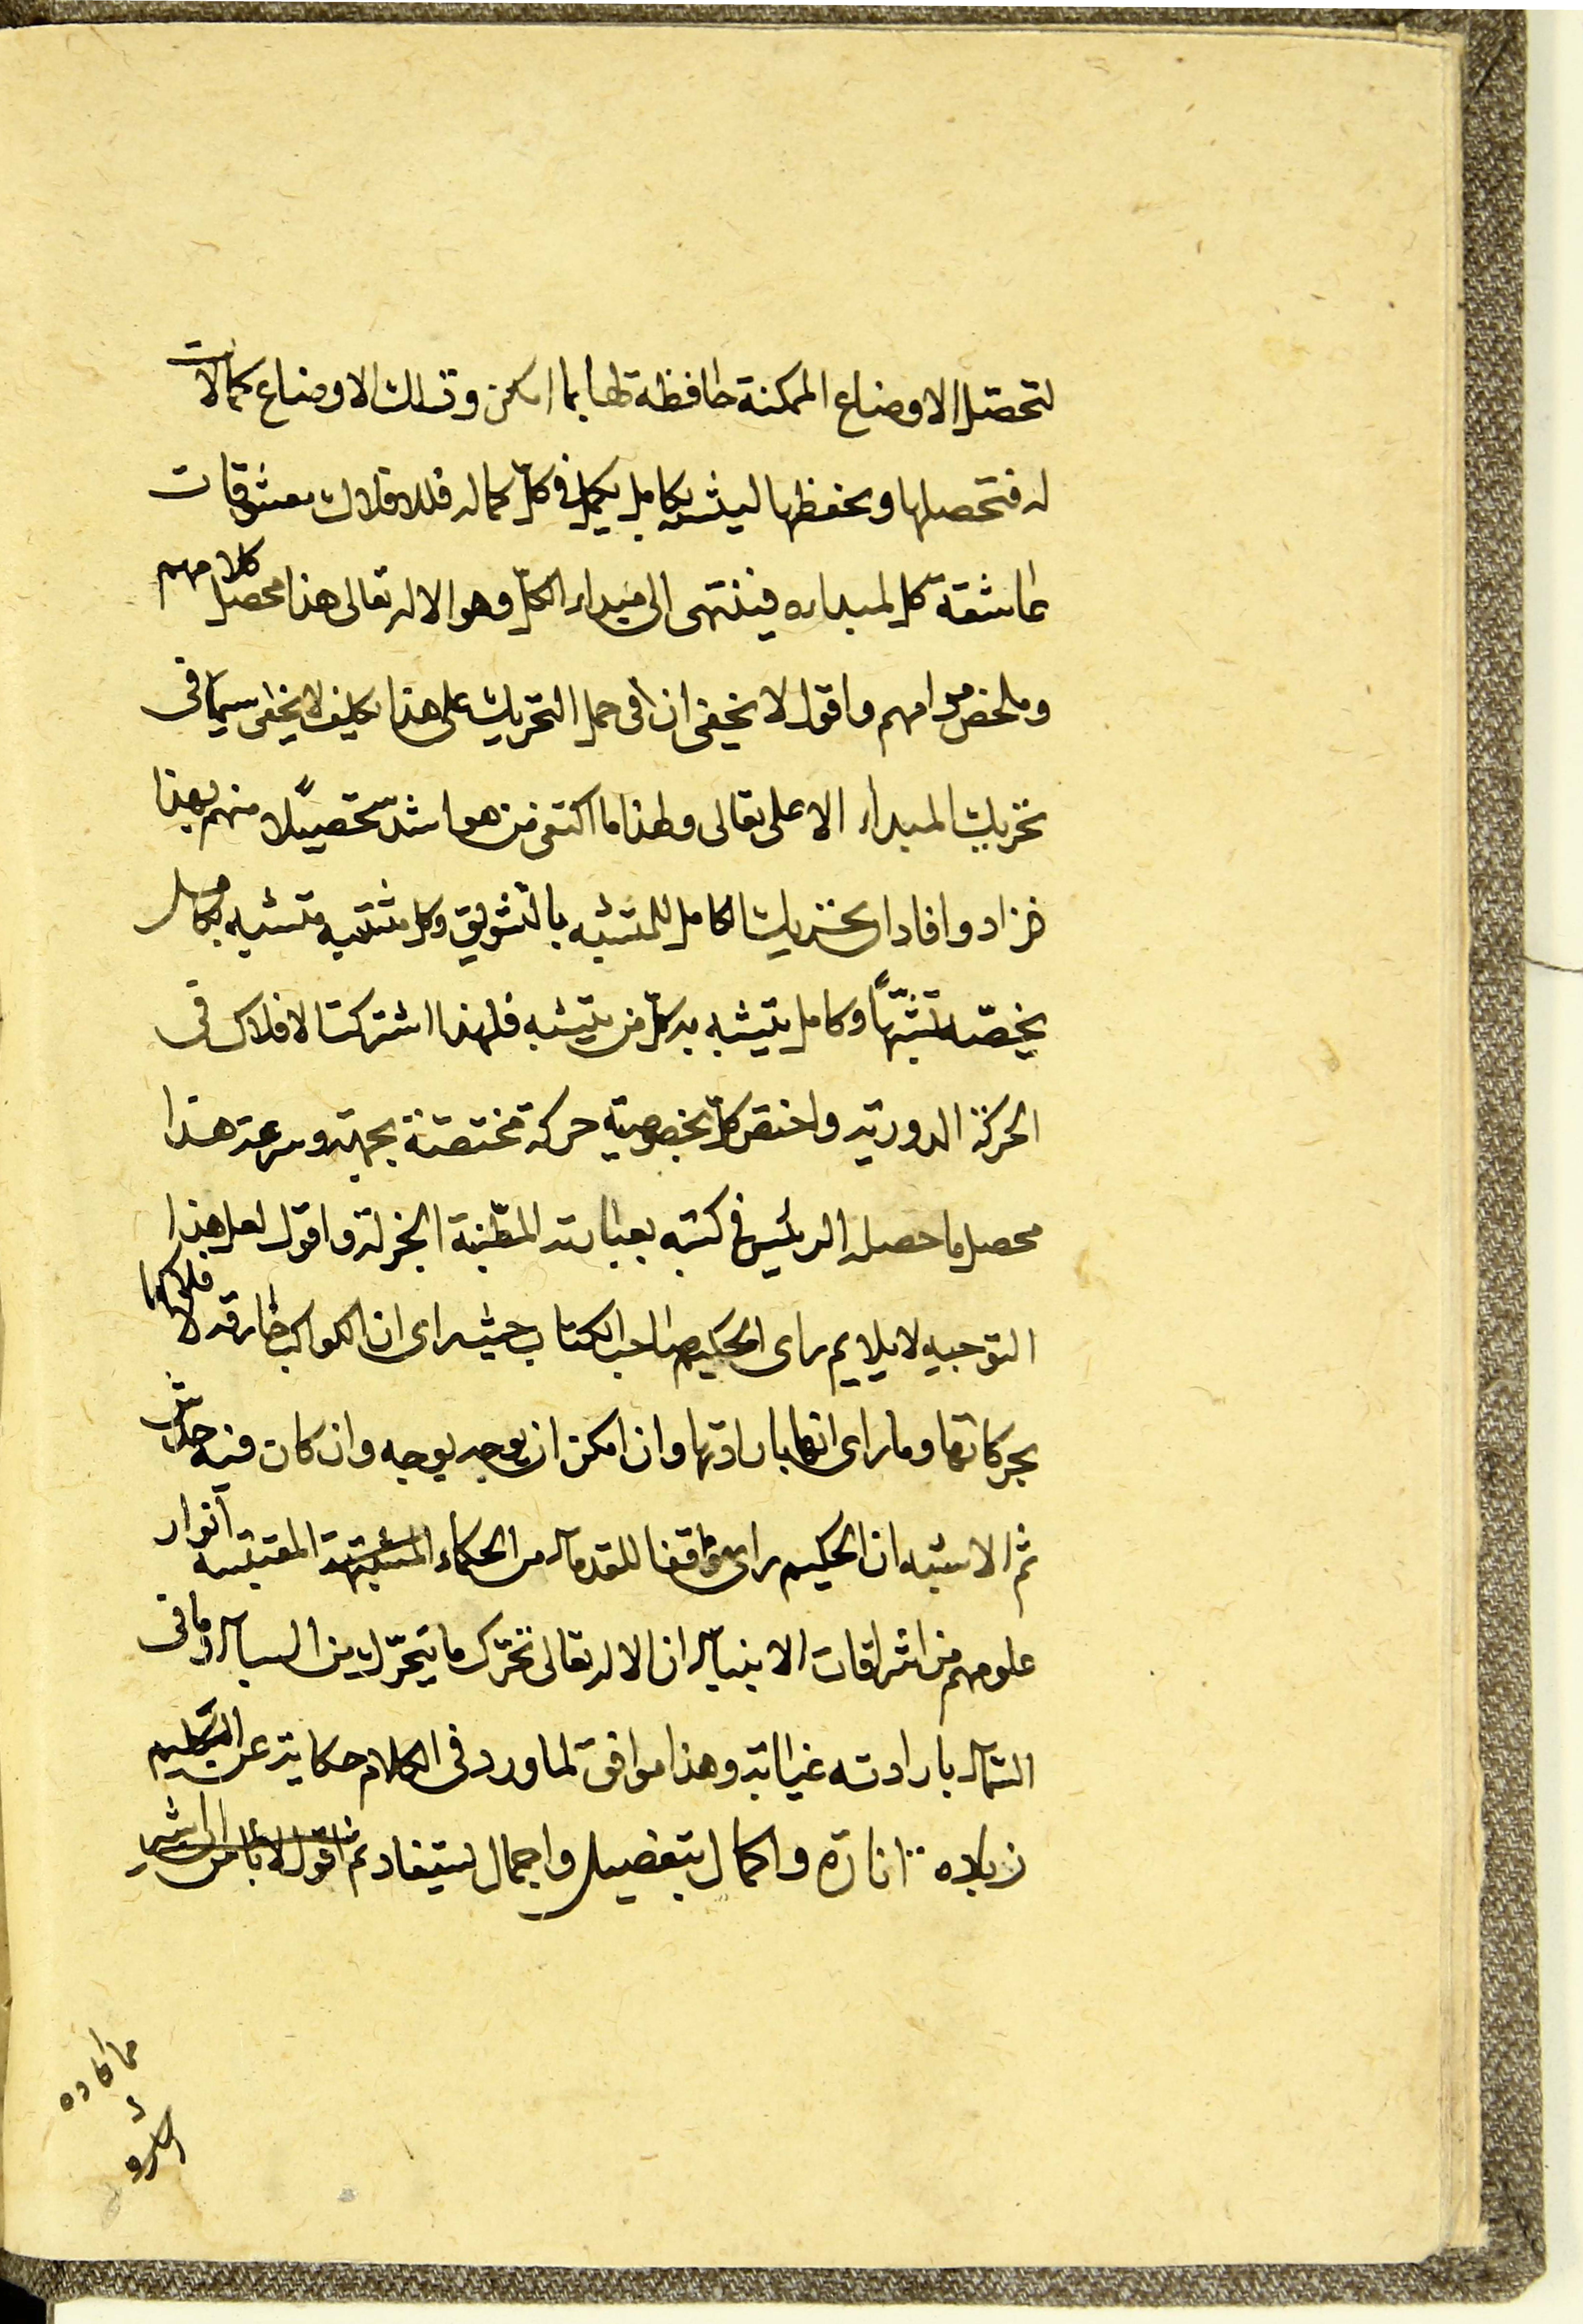 لتحصّل الاوضاع الممكنة حافظة لها بما امكن وتلك الاوضاع كمالات
له فتحصلها ويحفظها ليشبه بكامل يكمل في كلّ كماله فللافلاك معشوقات
عاشقة كل لمبداءه فينتهى الى مبداء الكلّ وهو الاله تعالى هذا محصّل كلامهم
وملخص مرامهم واقول لا يخفى ان فى حمل التحريك على هذا تكليف لا يخفى سيّما فى
تحريك المبداء الاعلى تعالى ولهذا ما اكتفى من هو اشد تحصيلًا منهم بهذا
فزاد وافاد ان تحريك الكامل للمتشبه بالتشويق وكل متشبه متشبه بكامل
يخصّه تشبّهًا وكامل يتشبه به كلّ من يتشبه فلهذا اشتركت الافلاك فى
الحركة الدوريّة واختصّ كلّ بخصوصيّة حركة مختصّة بجهة وسرعة هذا
محصل ما حصله الرئيس فى كتبه بعباراته المطنبة الجزلة واقول لعل هذا
التوجيه لا يلايم راى الحكيم صاحب الكتاب حيث راى ان الكواكب خارقة لافلاكها
بحركاتها وما راى انها بارادتها وان امكن ان يوجه بوجه وان كان فيه
ثم الاشبه ان الحكيم راى موافقا للقدماء من الحكماء المقتبسة انوار
علومهم من اشراقات الانبياء ان الاله تعالى تحرّك ما يتحرّك من السماء وما فى
السماء بارادته وهذا موافق لما ورد فى الكلام حكاية عن الكليم
زيادة انارة واكمال بتفصيل واجمال ليستفاد ثم اقول لا باس ان اشير
مما افاده